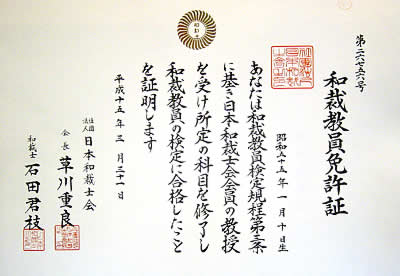 和裁教員免許証
昭和五十五年一月十日生
あなたは和裁教員検定規程第三条
に基き日本和裁士会会員の教授
を受け所定の科目を修了し
和裁教員の検定に合格したこと
を証明します
平成十五年三月三十一日
社団法人日本和裁士会
会長草川重良
和裁士石田君枝